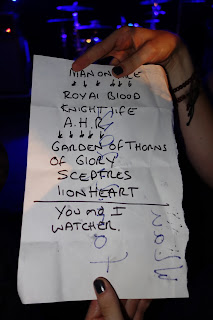 ROYAL BLOOD
KNIGHT LIFE
A.H.R
GARDEN OF THORNS
OF GLORY
SCEPTRES
LIONHEART
YOU AND I
WATCHER.